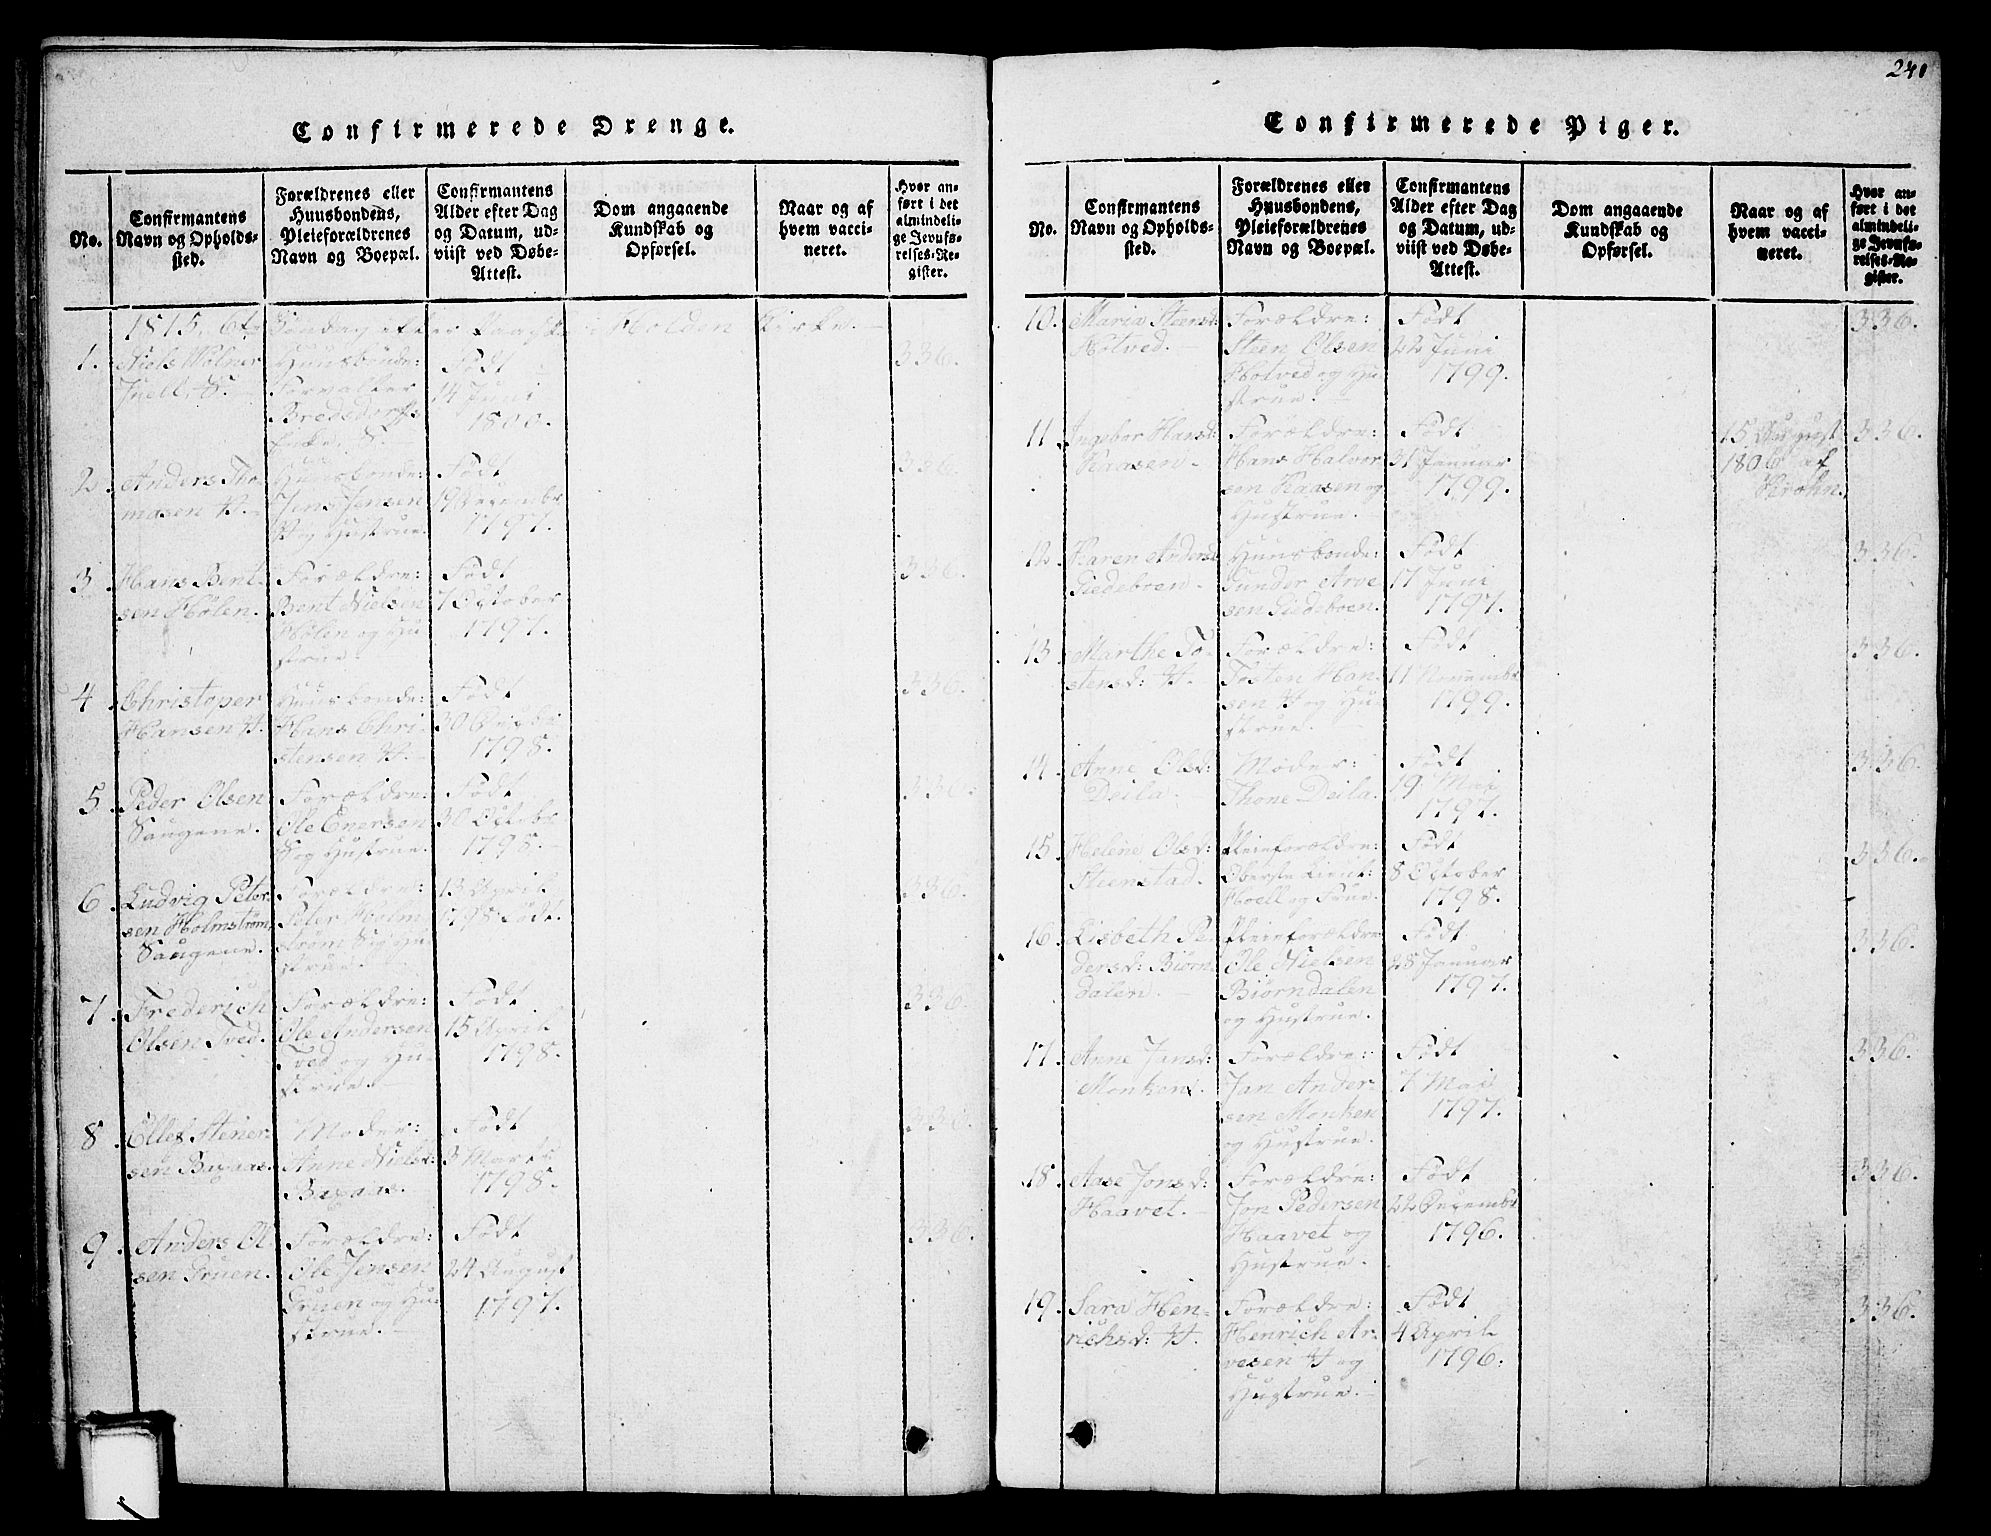 240
Confirmerede Drenge.
No.
Confirmantens
Navn og Opholds-
sted.
Forældrenes eller
Huusbondens,
Pleieforældrenes
Navn og Boepæl.
Confirmantens
Alder efter Dag
og Datum, ud-
viist ved Døbe-
Attest.
Dom angaaende
Kundskab og
Opførsel.
Naar og af
hvem vacci-
neret.
Hvor an-
ført i det
almindeli-
ge Jevnfø-
relses-Re-
gister.
1815, 6te Søndag efter Paaske i Holden Kirke.
1.
Niels Wølner
Juell, S.
Huusbonde:
Forvalter
Bredsdorff
S.
Født
14 Juni
1800.
336.
2.
Anders Tho-
masen V.
Huusbonde:
Jens Jensen
V og Hustrue.
Født
19 December
1797.
336.
3.
Hans Bent-
sen Hølen.
Forældre:
Bent Nielsen
Hølen og Hu-
strue.
Født
7 October
1797.
336.
4.
Christoper
Hansen H.
Huusbonde:
Hans Chri-
stensen H.
Født
30
1798.
336.
5.
Peder Olsen
Saugene.
Forældre:
Ole Enersen
S og Hustrue.
Født
30 Octobr
1798.
336.
6.
Ludvig Peter-
sen Holmstrøm,
Saugene.
Forældre:
Peter Holm-
strøm S og Hu-
strue.
13 April
1798 Født.
336.
7.
Frederich
Olsen Tved.
Forældre:
Ole Andersen
Tved og Hu-
strue.
Født
15 April
1798.
336.
8.
Ellef Stener-
sen Baxaas.
Moder:
Anne Nielsd:
Baxaas.
Født
3 Marts
1798.
336.
9.
Anders Ol-
sen Gruen.
Forældre:
Ole Jensen
Gruen og Hu-
strue.
Født
24 August
1797.
336.
Confirmerede Piger.
No.
Confirmantens
Navn og Opholds-
sted.
Forældrenes eller
Huusbondens,
Pleieforældrenes
Navn og Boepæl.
Confirmantens
Alder efter Dag
og Datum, ud-
viist ved Døbe-
Attest.
Dom angaaende
Kundskab og
Opførsel.
Naar og af
hvem vacci-
neret.
Hvor an-
ført i det
almindeli-
ge Jevnfø-
relses-Re-
gister.
10.
Maria Steensd:
Holtved.
Forældre:
Steen Olsen
Holtved og Hu-
strue.
Født
22 Juni
1799.
336.
11.
Ingebor Hansd:
Kaasen.
Forældre:
Hans Halvor-
sen Kaasen og
Hustrue.
Født
31 Januar
1799.
15 August
180 af
Krohn.
336.
12.
Karen Andersd:
Giedeboen.
Huusbonde:
Gunder Arve-
sen Giedeboen.
Født
17 Juni
1797.
336.
13.
Marthe To-
stensd: H.
Forældre:
Tosten Han-
sen H og Hu-
strue.
Født
11 Novembr
1799.
336.
14.
Anne Olsd:
Deila.
Moder:
Thone Deila.
Født
19 Mai
1797.
336.
15.
Helene Olsd:
Steenstad.
Pleieforældre:
Oberste Lieut:
Hoell og Frue.
Født
8 October
1798.
336.
16.
Lisbeth Pe-
dersd: Biørn-
dalen.
Pleieforældre
Ole Nielsen
Biørndalen
og Hustrue.
Født
28 Januar
1797.
336.
17.
Anne Jansd:
Monken.
Forældre:
Jan Ander-
sen Monken
og Hustrue.
Født
7 Mai
1797.
336.
18.
Aase Jonsd:
Haavet.
Forældre:
Jon Pedersen
Haavet og
Hustrue.
Født
22 Decembr
1796.
336.
19.
Sara Hen-
richsd: H.
Forældre:
Henrich Ar-
vesen H og
Hustrue.
Født
4 April
1796.
336.